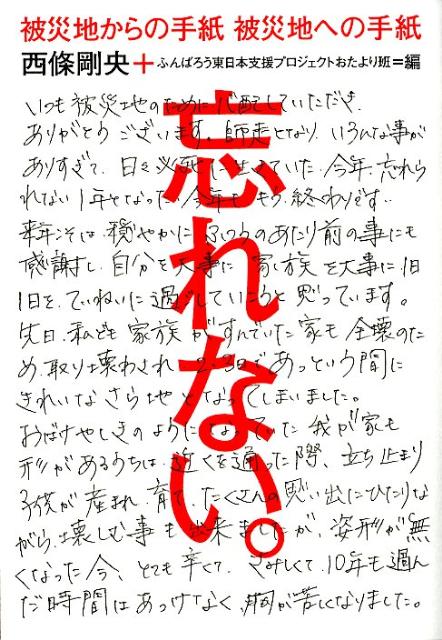 被災地からの手紙 被災地への手紙
西條剛央+ふんばろう東日本支援プロジェクトおたより班=編
忘れない。
いつも被災地のために心配していただき
ありがとうございます。師走となり、いろんな事が
ありすぎて、日々必死に生きていた今年、忘れら
れない1年となった今年ももう終わりです…
来年こそは穏やかにふつうのあたり前の事にも
感謝し、自分を大事に家族を大事に、1日
1日を、ていねいに過ごしていこうと思っています。
先日、私ども家族がすんでいた家も全壊のた
め、取り壊わされ2~3日であっという間に
きれいなさら地となってしまいました。
おばけやしきのようになっていた我が家も
形があるうちは、近くを通った際、立ち止まり
子供が産まれ、育て、たくさんの思い出にひたりな
がら、壊しむ事も出来ましたが、姿形が無
くなった今、とても辛くて、さみしくて、10年も過ん
だ時間はあっけなく、胸が苦しくなりました。